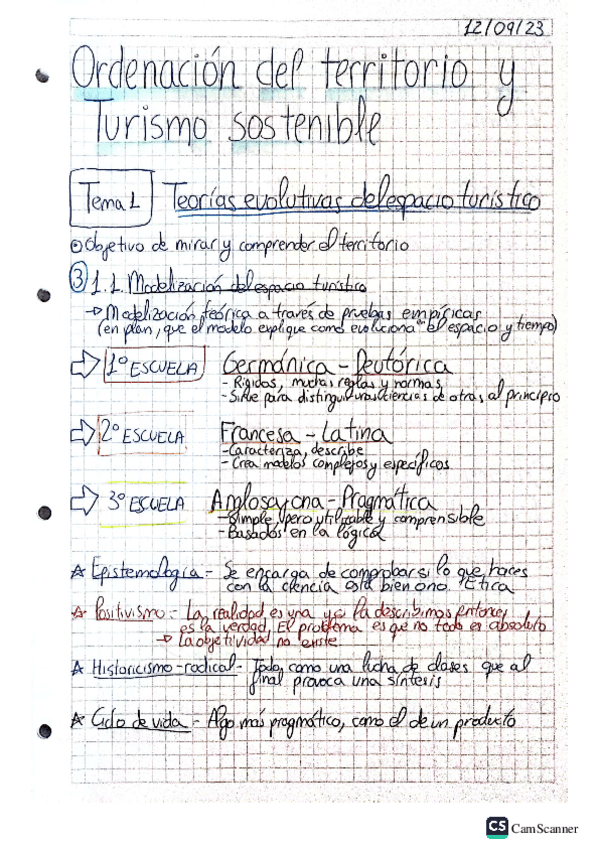 12/09/23
Ordenación del territorio y
Turismo sostenible
Tema 1 Teorías evolutivas del espacio turístico
Objetivo de mirar y comprender el territorio
③ 1.1. Modelización del espacio turístico
→ Modelización teórica a través de pruebas empíricas
(en plan, que el modelo explique como evoluciona el espacio y tiempo)
1º ESCUELA Germánica - Deutórica
- Rígidos, muchas reglas y normas
- Sirve para distinguir unas ciencias de otras, al principio
2º ESCUELA Francesa - Latina
- Caracteriza, describe
- Crea modelos complejos y específicos
3º ESCUELA Anglosajona - Pragmática
- Simple, pero utilizable y comprensible
- Basados en la lógica
☆ Epistemología - Se encarga de comprobar si lo que haces
con la ciencia está bien o no. Ética
☆ Positivismo - La realidad es una y si la describimos entonces
es la verdad. El problema es que no todo es absoluto
→ La objetividad no existe
☆ Historicismo-radical - Todo, como una lucha de clases que al
final provoca una síntesis
☆ Ciclo de vida - Algo más pragmático, como el de un producto
CS CamScanner